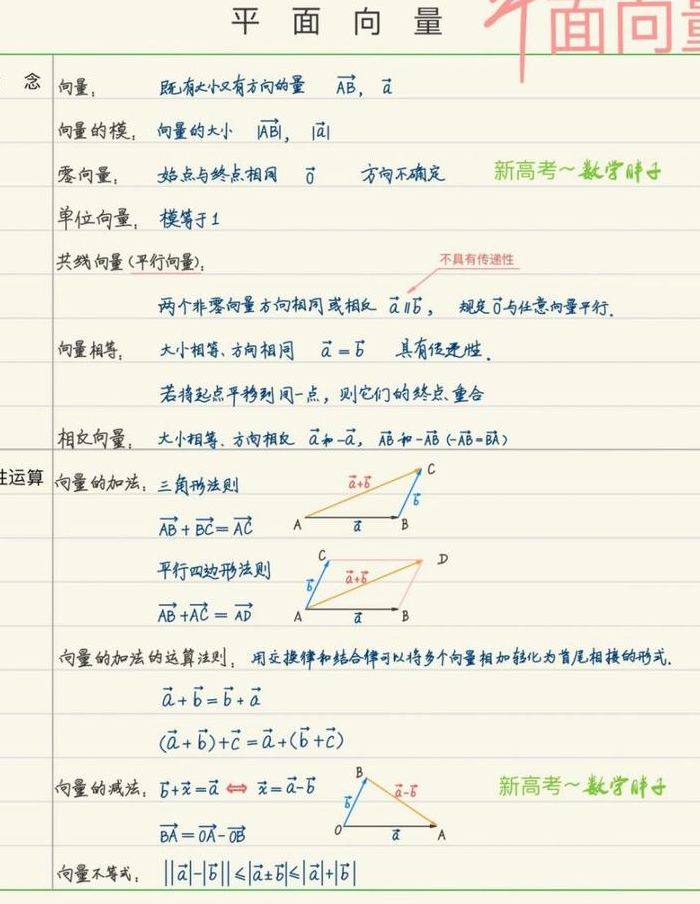 平面向量
平面向量
念
向量: 既有大小又有方向的量 $\overrightarrow{AB}$, $\vec{a}$
向量的模: 向量的大小 $|\overrightarrow{AB}|$, $|\vec{a}|$
零向量: 始点与终点相同 $\vec{0}$ 方向不确定
新高考~数学胖子
单位向量: 模等于1
共线向量(平行向量):
不具有传递性
两个非零向量方向相同或相反 $\vec{a}∥\vec{b}$, 规定$\vec{0}$与任意向量平行.
向量相等: 大小相等、方向相同 $\vec{a}=\vec{b}$ 具有传递性.
若将起点平移到同一点, 则它们的终点重合
相反向量: 大小相等、方向相反 $\vec{a}$和$-\vec{a}$, $\overrightarrow{AB}$和$-\overrightarrow{AB}$ ($-\overrightarrow{AB}=\overrightarrow{BA}$)
性运算
向量的加法: 三角形法则
$\overrightarrow{AB}+\overrightarrow{BC}=\overrightarrow{AC}$
A B C $\vec{a}$ $\vec{b}$ $\vec{a}+\vec{b}$
平行四边形法则
$\overrightarrow{AB}+\overrightarrow{AC}=\overrightarrow{AD}$
A B C D $\vec{a}$ $\vec{b}$ $\vec{a}+\vec{b}$
向量的加法的运算法则: 用交换律和结合律可以将多个向量相加转化为首尾相接的形式.
$\vec{a}+\vec{b}=\vec{b}+\vec{a}$
$(\vec{a}+\vec{b})+\vec{c}=\vec{a}+(\vec{b}+\vec{c})$
向量的减法: $\vec{b}+\vec{x}=\vec{a}$ ⇔ $\vec{x}=\vec{a}-\vec{b}$
$\overrightarrow{BA}=\overrightarrow{OA}-\overrightarrow{OB}$
O A B $\vec{a}$ $\vec{b}$ $\vec{a}-\vec{b}$
新高考~数学胖子
向量不等式: $||\vec{a}|-|\vec{b}||≤|\vec{a}±\vec{b}|≤|\vec{a}|+|\vec{b}|$